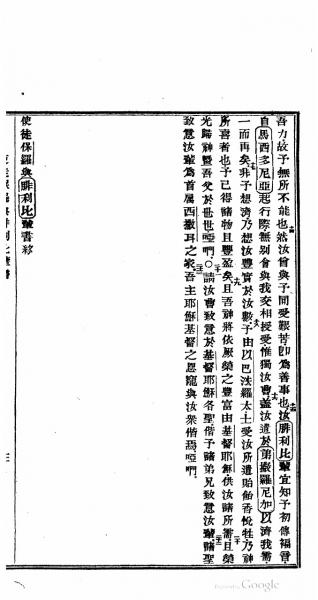 吾力故予無所不能也然汝曾與予同受艱苦即為善事也汝腓利比輩宜知予初傳福音
自馬西多尼亞起行際無別會與我交相授受惟獨汝曹蓋汝遣於第撒羅尼加以濟我需
一而再矣非予想濟乃想汝豐實於汝數予由以巴法羅太土受汝所遺貽飴香悅牲乃神
所喜者也予已得諸物且豐盈矣且吾神將依厥榮之豐富由基督耶穌供汝諸所需且榮
光歸神暨吾父於世世啞們○請汝曹致意於基督耶穌各聖偕予諸弟兄致意汝輩諸聖
致意汝輩為首厲西撒耳之家吾主耶穌基督之恩寵與汝眾偕焉啞們
使徒保羅與腓利比輩書終
Google